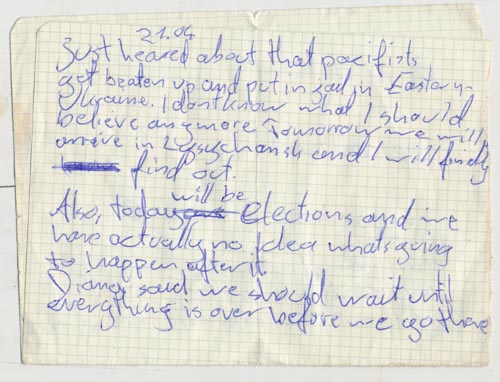 21.04
Just heared about that pacifists
get beaten up and put in jail in Eastern
Ukraine. I dont know what I should
believe anymore Tomorrow we will
arrive in Lysychansk and I will finally
find out.
will be
Also, today elections and we
have actually no idea whats going
to happen after it.
Diana said we should wait until
everything is over before we go there